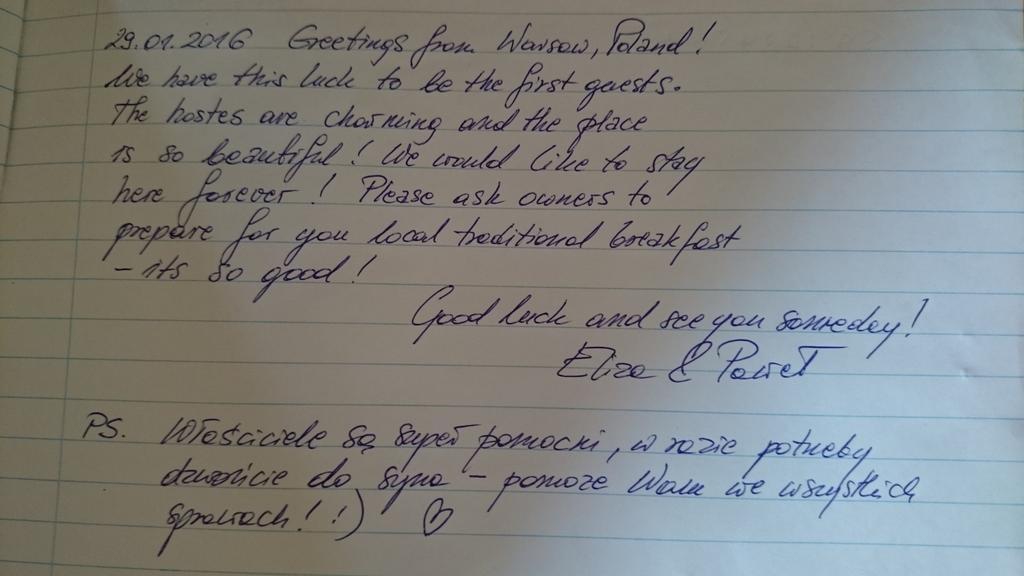 29.01.2016 Greetings from Warsaw, Poland!
We have this luck to be the first guests.
The hostes are charming and the place
is so beautiful! We would like to stay
here forever! Please ask owners to
prepare for you local traditional breakfast
- its so good!
Good luck and see you someday!
Eliza & Paweł
PS. Właściciele są super pomocni, w razie potrzeby
dzwońcie do syna - pomoże Wam we wszystkich
sprawach! :) ♡